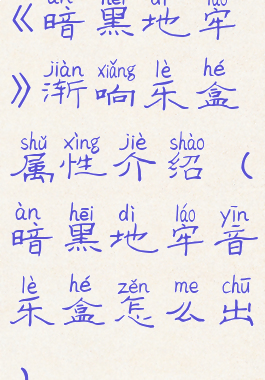 àn hēi dì láo
《暗黑地牢
jiàn xiǎng lè hé
》渐响乐盒
shǔ xìng jiè shào
属性介绍（
àn hēi dì láo yīn
暗黑地牢音
lè hé zěn me chū
乐盒怎么出
）